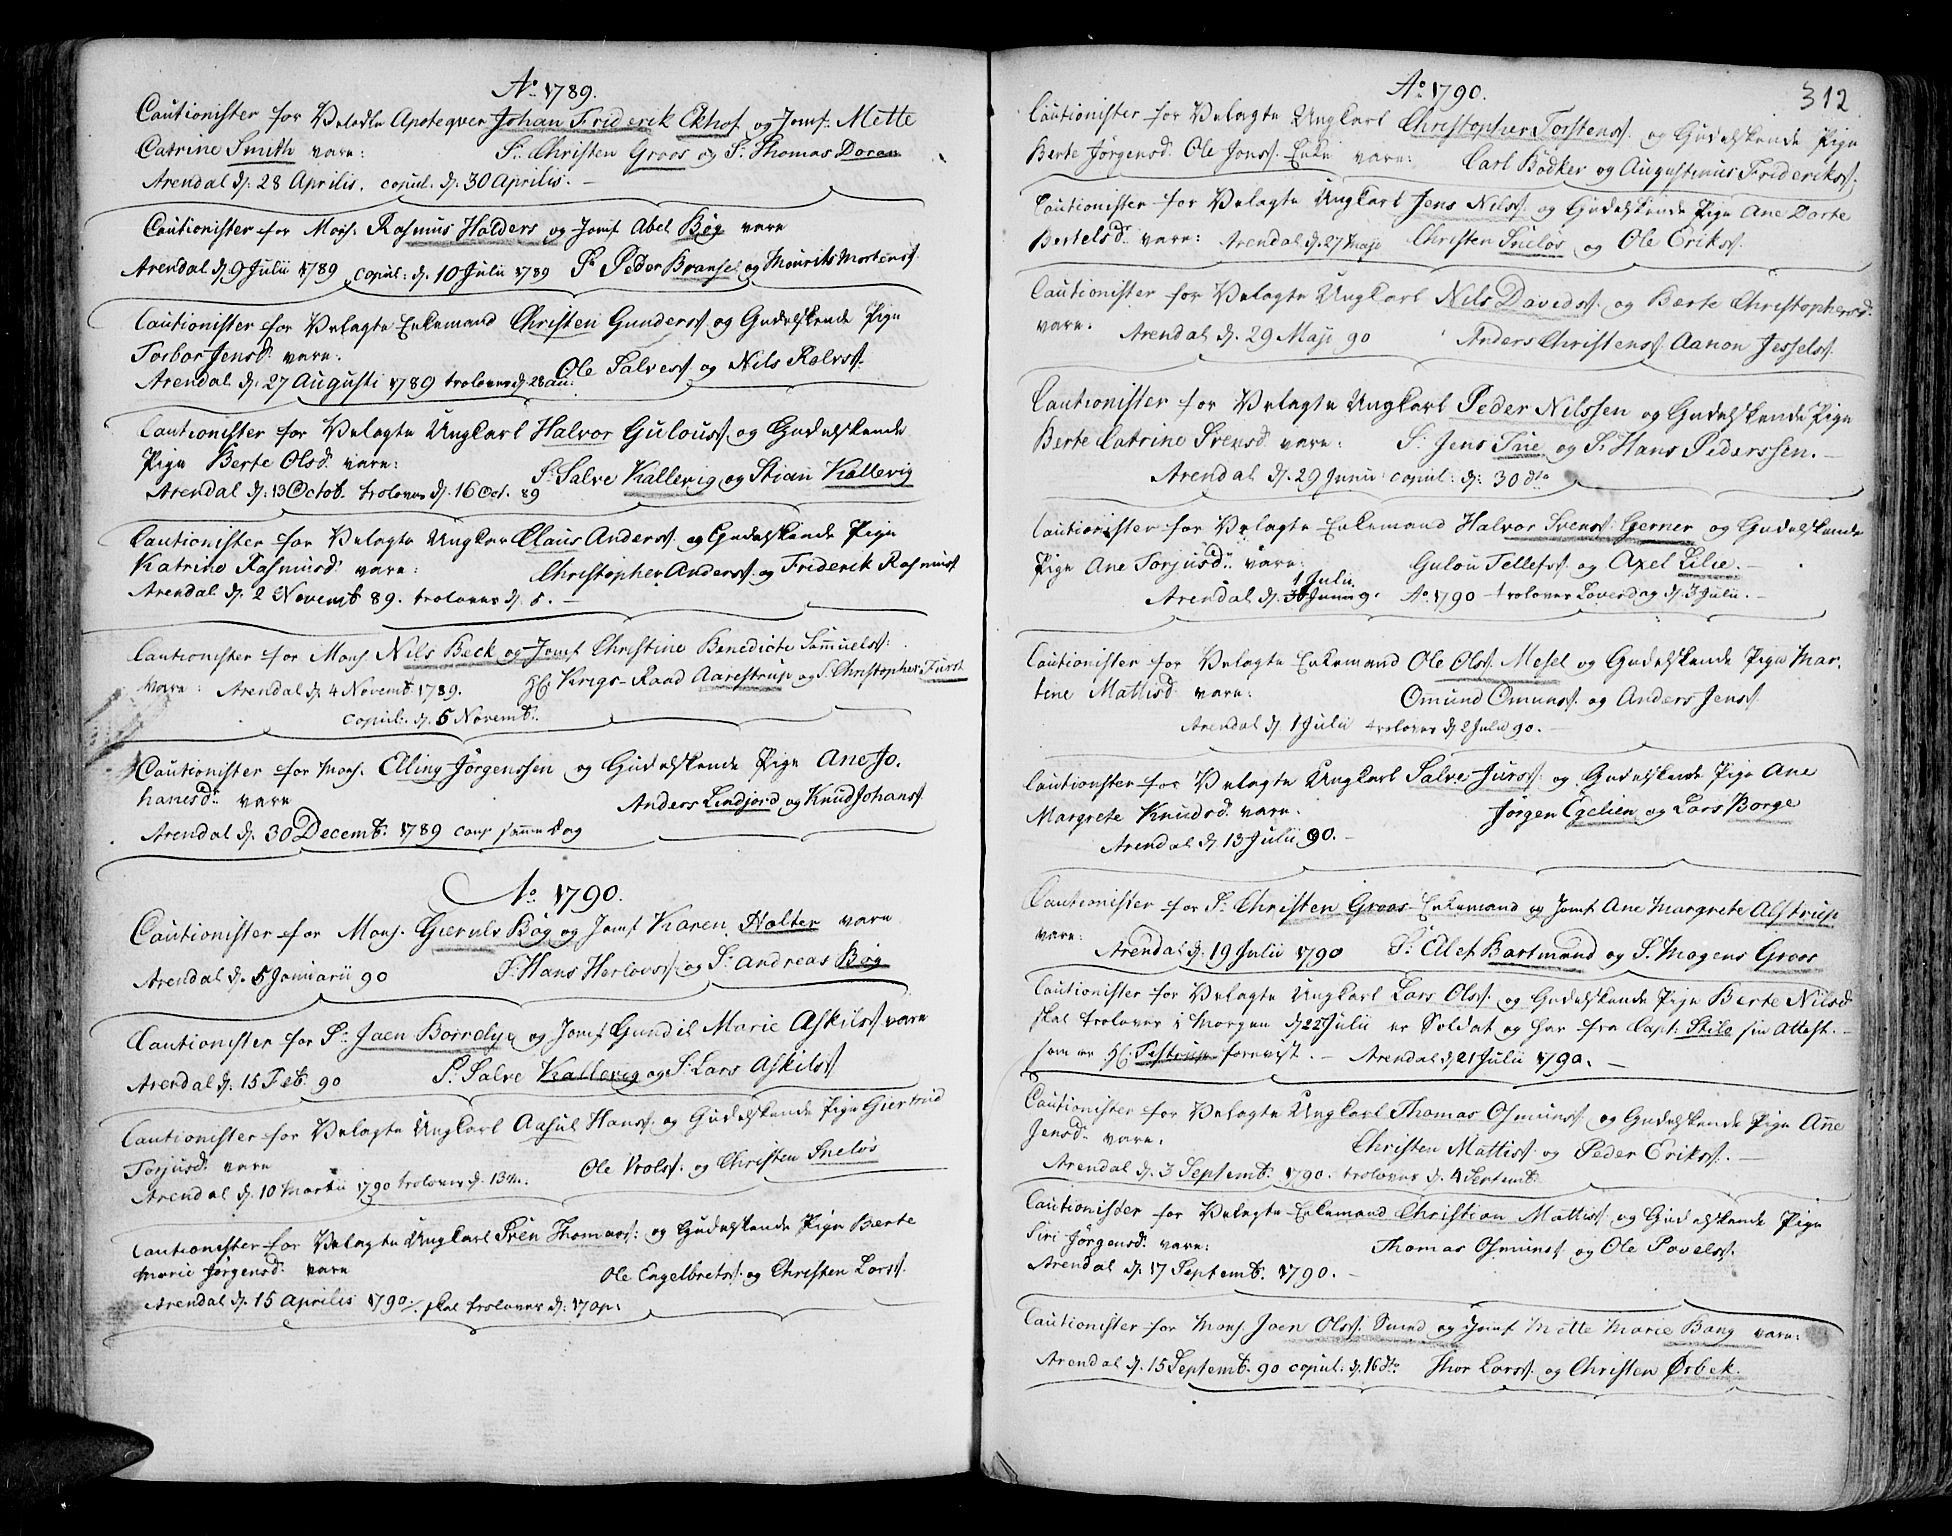 Ao 1789.
Cautionister for Velædle Apoteqver Johan Friderik Ekhof og Jomf. Mette
Catrine Smith vare: Sr. Christen Groos og Sr. Thomas Doran
Arendal d. 28 Aprilis. copul. d. 30 Aprilis. —
Cautionister for Mons. Rasmus Halders og Jomf Abel Bøg vare
Arendal d. 9 Julii 1789 copul: d. 10 Julii 1789 Sr. Peder Bransel og Mourits Mortens.
Cautionister for Velagte Enkemand Christen Gunders. og Gudelskende Pige
Torbor Jensd. vare:
Ole Salves. og Nils Rolvs.
Arendal d. 27 Augusti 1789 trolover d. 28 au:
Cautionister for Velagte Ungkarl Halvor Gulous. og Gudelskende
Pige Berte Olsd. vare:
Sr. Salve Kallevig og Stian Kallevig
Arendal d. 13 Octob. trolover d. 16 Oct. 89
Cautionister for Velagte Ungkar Claus Anders. og Gudelskende Pige
Katrine Rasmusd. vare: Christopher Anders. og Friderik Rasmus.
Arendal d. 2 Novemb 89. trolover d. 5. —
Cautionister for Mons. Nils Beck og Jomf Christine Benedicte Samuels.
vare: Arendal d. 4 Novemb. 1789. Hr. Krigs-Raad Aarestrup og S. Christopher Furst
copul: d. 5 Novemb.
Cautionister for Mons. Elling Jørgenssen og Gudelskende Pige Ane Jo-
hanesd. vare Anders Lindjord og Knud Johans.
Arendal d. 30 Decemb. 1789 cop. samme Dag
Ao 1790.
Cautionister for Mons. Gieruls Bøg og Jomf Karen Holter vare
Arendal d. 5 Januarii 90 Sr. Hans Herlovs. og Sr. Andreas Bøg
Cautionister for Sr. Jaen Borrdlye og Jomf Gundil Marie Askils. vare
Arendal d. 15 Feb. 90 Sr. Salve Kallevig og S. Lars Askils.
Cautionister for Velagte Ungkarl Aasul Hans. og Gudelskende Pige Giertrud
Torjusd. vare Ole Vrols. og Christen Sneløs
Arendal d. 10 Martii 1790 trolover d. 13 M.
Cautionister for Velagte Ungkarl Sven Thomas. og Gudelskende Pige Berte
Marie Jørgensd. vare Ole Engelbrets. og Christen Lars.
Arendal d. 15 Aprilis 1790. skal trolover d. 17 ap:
Ao 1790. 312
Cautionister for Velagte Ungkarl Christopher Torstens. og Gudelskende Pige
Berte Jørgensd. Ole Jons. Enke vare: Carl Bødker og Augustinus Frideriks.
Cautionister for Velagte Ungkarl Jens Nils. og Gudelskende Pige Ane Dorte
Bertelsd. vare: Arendal d. 27 Maji Christen Sneløs og Ole Eriks.
Cautionister for Velagte Ungkarl Nils Davids. og Berte Christophersd.
vare: Arendal d. 29 Maji 90 Anders Christens. Aanon Jessels.
Cautionister for Velagte Ungkarl Peder Nilssen og Gudelskende Pige
Berte Catrine Svensd. vare: S. Jens Tue og S. Hans Pederssen. —
Arendal d. 29 Junii copul: d: 30 dto
Cautionister for Velagte Enkemand Halvor Svens. Gerner og Gudelskende
Pige Ane Torjusd. vare: Gulou Tellefs. og Axel Lilie.
1 Julii.
Arendal d. 30 Junii 9. Ao. 1790 trolover Løverdag d. 3 Julii. —
Cautionister for Velagte Enkemand Ole Ols. Mesel og Gudelskende Pige Mar-
tine Mattisd. vare: Omund Omuns. og Anders Jens.
Arendal d. 1 Julii trolover d. 2 Julii 90. —
Cautionister for Velagte Ungkarl Salve Jurs. og Gudelskende Pige Ane
Margrete Knudsd. vare. Jørgen Egelien og Lars Borge
Arendal d. 13 Julii 90. —
Cautionister for Sr. Christen Groos Enkemand og Jomf Ane Margrete Alstrup
vare: Arendal d. 19 Julii 1790 Sr. Elef Bartmund og S. Mogens Groos
Cautionister for Velagte Ungkarl Lars Ols. og Gudelskende Pige Berte Nilsd.
skal trolover i Morgen d. 22 Julii er Soldat og har fra Capt. Skile sin Attest.
som er Hr. forevist. — Arendal d. 21 Julii 1790. —
Cautionister for Velagte Ungkarl Thomas Osmuns. og Gudelskende Pige Ane
Jensd. vare. Christen Mattis. og Peder Eriks. —
Arendal d. 3 Septemb. 1790. trolover d. 4 Septemb.
Cautionister for Velagte Enkemand Christian Mattis. og Gudelskende Pige
Siri Jørgensd. vare: Thomas Osmuns. og Ole Povels.
Arendal d. 17 Septemb. 1790. —
Cautionister for Mons. Joen Ols. Smed og Jomf Mette Marie Bang vare:
Arendal d. 15 Septemb. 90 copul: d. 16 dto Thor Lars. og Christen Ørbek.